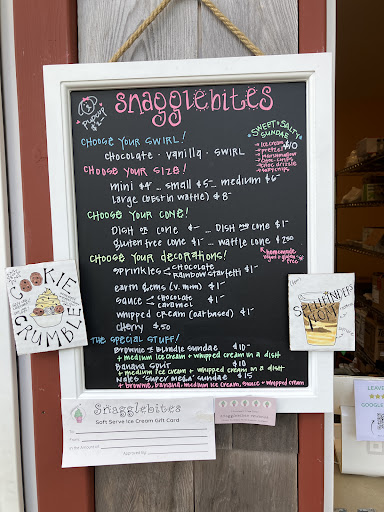 Snagglebites
PUPCUP
CHOOSE YOUR SWIRL!
chocolate · vanilla · SWIRL
CHOOSE YOUR SIZE!
mini $4 – small $5 – medium $6 –
large (best in waffle) $8 –
SWEET & SALTY SUNDAE
$10
→ ice cream
→ pretzel
→ marshmallow
→ choc. chips
→ choc drizzle
CHOOSE YOUR CONE!
DISH or cone $ – DISH AND cone $1 –
gluten free cone $1 – waffle cone $2.50
CHOOSE YOUR DECORATIONS!
homemade
vegan & gluten free
sprinkles < chocolate rainbow $1 –
earth gems (v. m&m) $1 –
sauce < chocolate caramel $1 –
whipped cream (oat based) $1 –
cherry $.50
THE SPECIAL STUFF!
Brownie or Blondie Sundae $10 –
+ medium ice cream + whipped cream in a dish
Banana Split $10
+ medium ice cream + whipped cream in a dish
Noles "Super Mega" Sundae $15
+ brownie, banana, medium ice cream, sauce + whipped cream
COOKIE
CRUMBLE
Snagglebites
Soft Serve Ice Cream Gift Card
To:
From:
In the Amount of:
Approved By:
LEAVE
GOOGLE